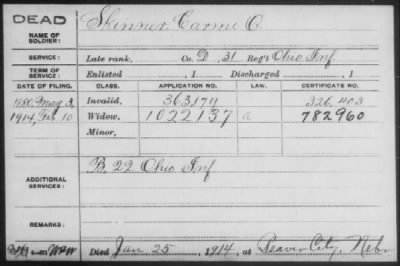 DEAD
NAME OF SOLDIER: Skinner, Carmi O.
SERVICE: Late rank, Co. D, 31 Reg't Ohio Inf
TERM OF SERVICE: Enlisted , 1 Discharged , 1
DATE OF FILING. CLASS. APPLICATION NO. LAW. CERTIFICATE NO.
1880, May 3, Invalid, 363,179 326,403
1914, Feb 10 Widow, 1022137 a 782960
Minor,
ADDITIONAL SERVICES: B, 22 Ohio Inf
REMARKS:
Died Jan 25, 1914, at Beaver City, Neb.